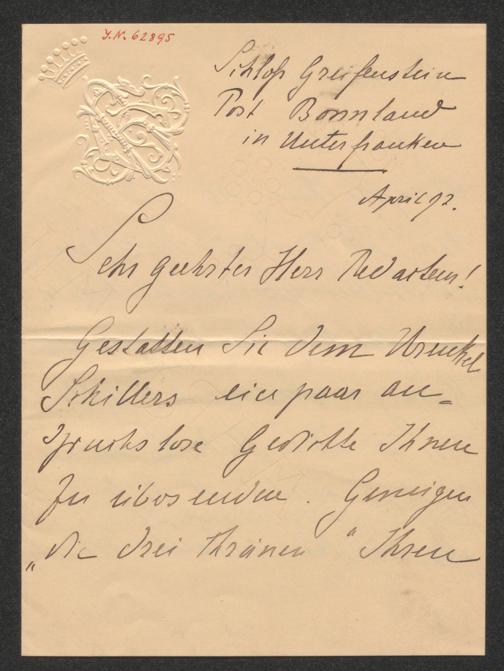 J.N. 62895
Schloß Greifenstein
Post Bonnland
in Unterfranken
April 92.
Sehr geehrter Herr Redacteur!
Gestatten Sie dem Urenkel
Schillers ein paar an-
spruchslose Gedichte Ihnen
zu übersenden. Genügen
„die drei Thränen" Ihren